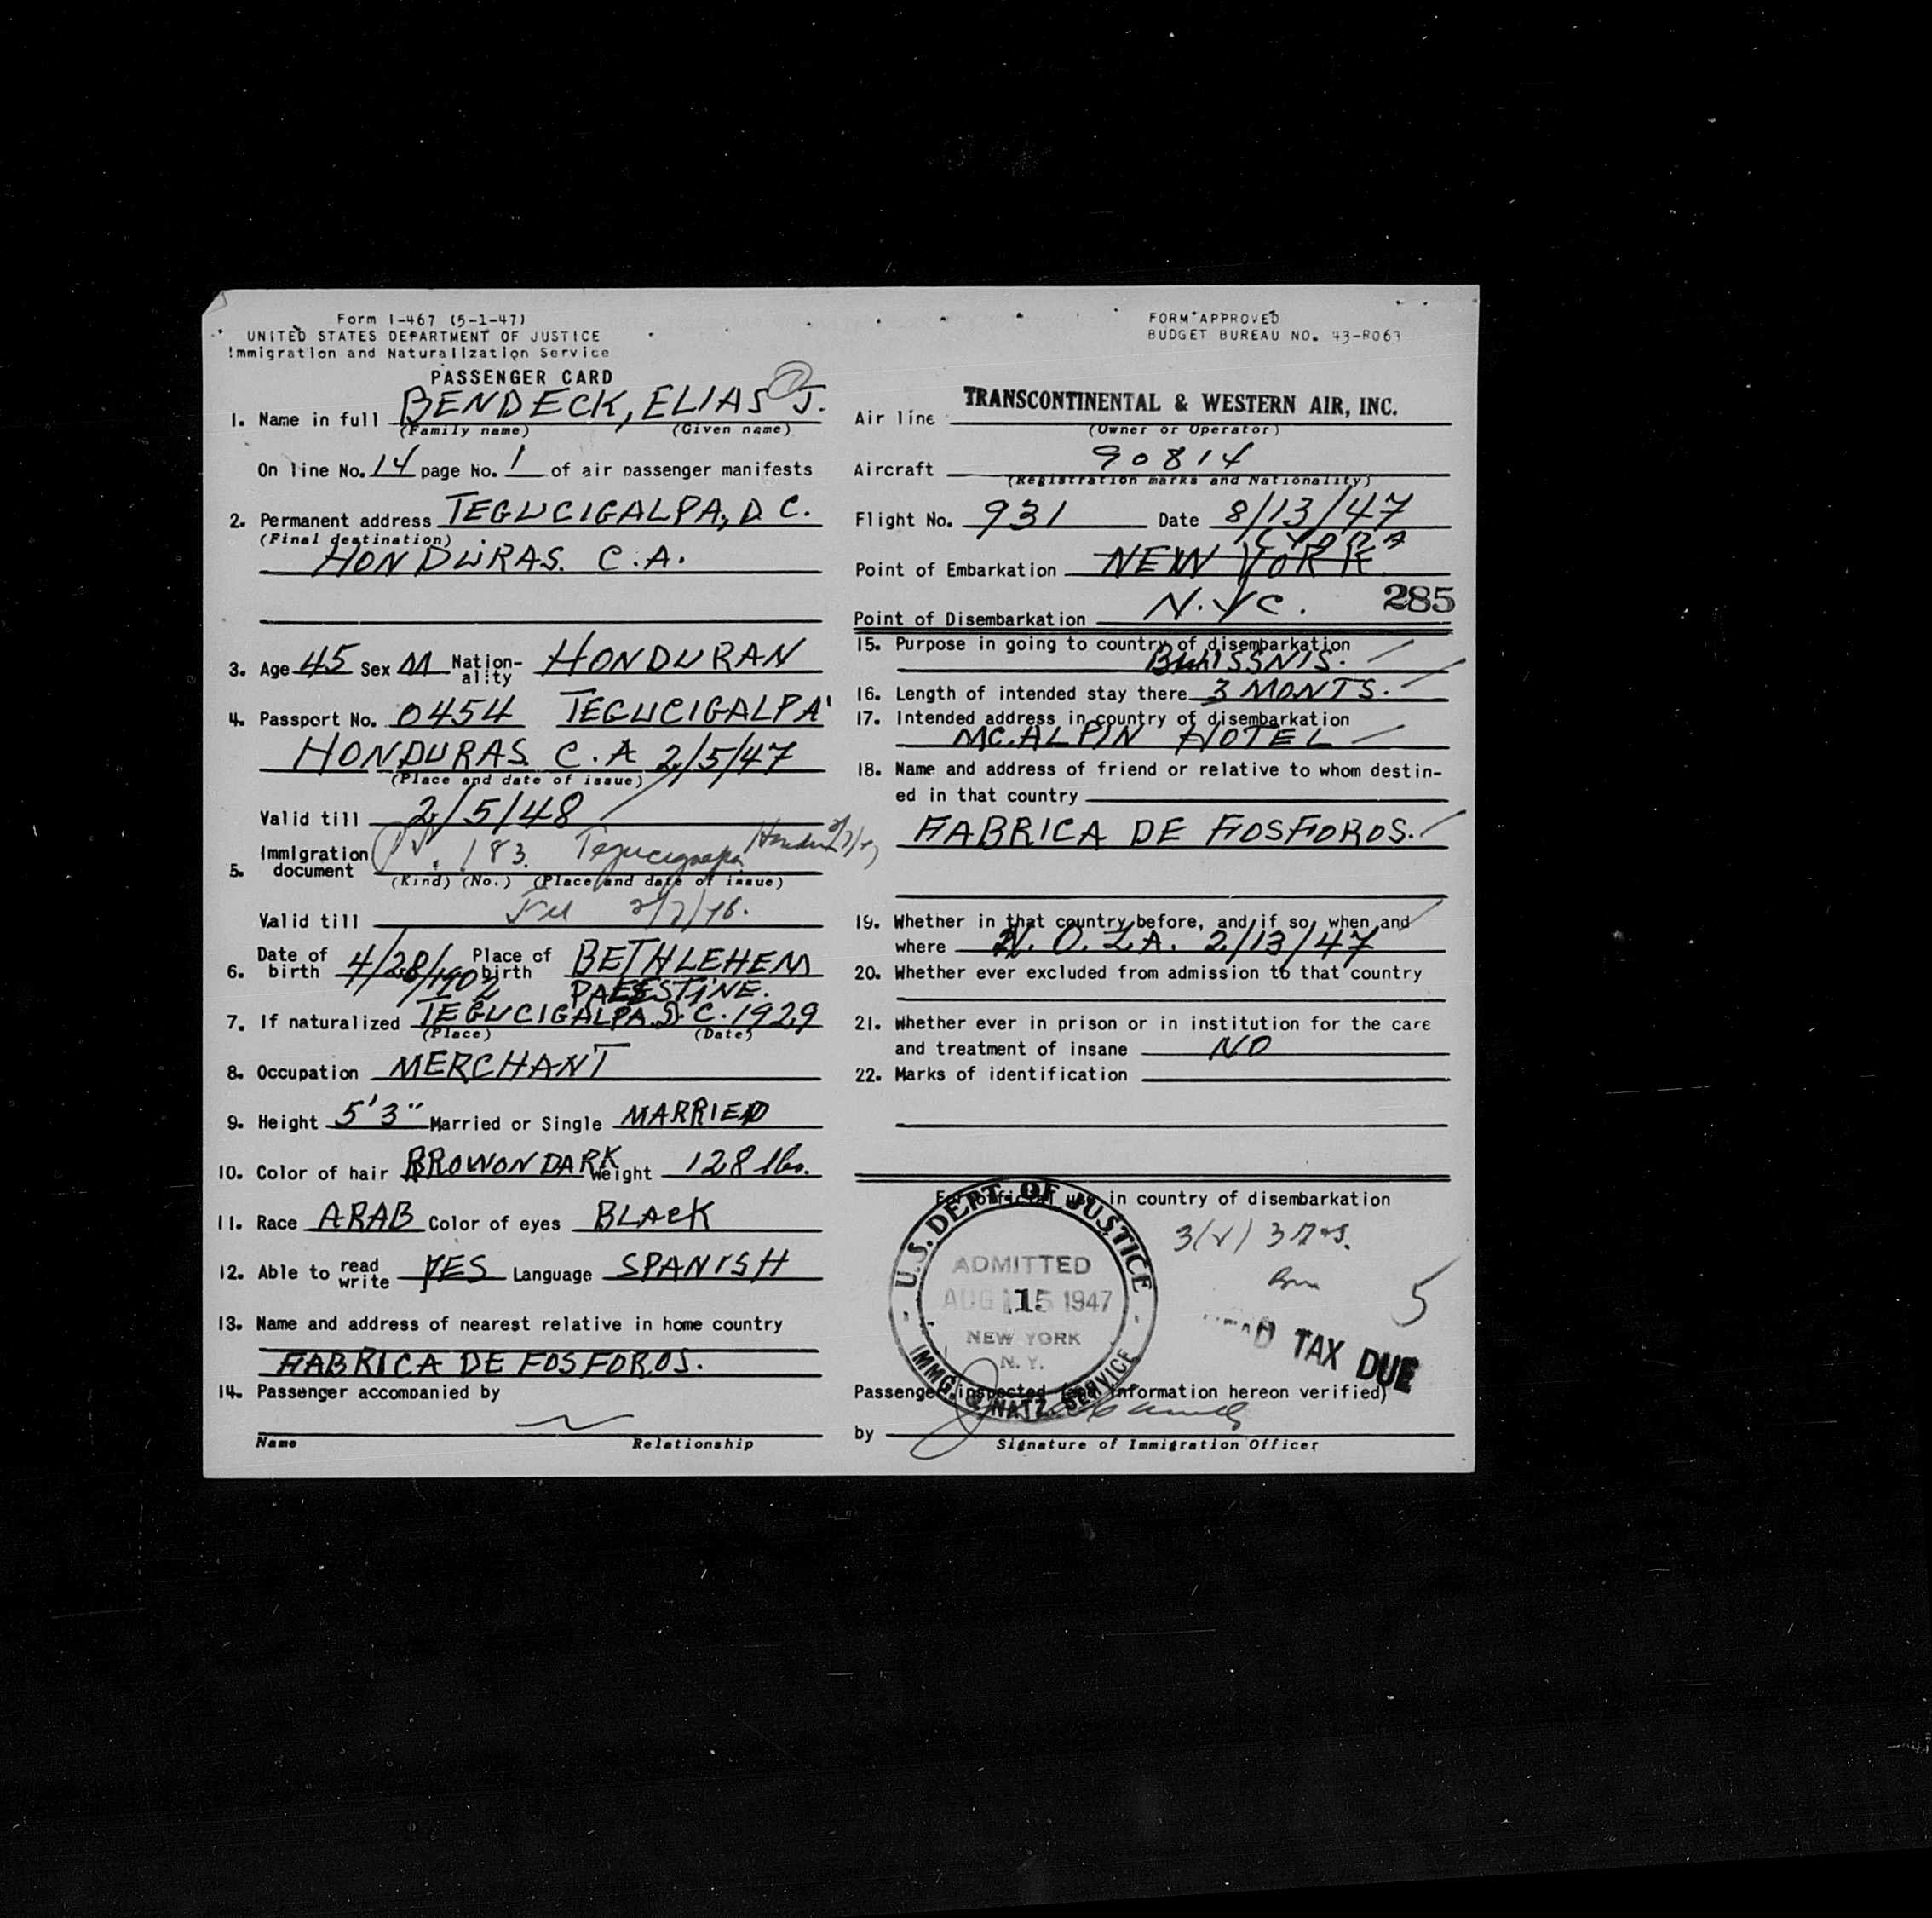 Form I-467 (5-1-47)
UNITED STATES DEPARTMENT OF JUSTICE
Immigration and Naturalization Service
PASSENGER CARD
1. Name in full BENDECK, ELIAS J.
(Family name) (Given name)
On line No. 14 page No. 1 of air passenger manifests
2. Permanent address TEGUCIGALPA, D.C.
(Final destination)
HONDURAS. C.A.
3. Age 45 Sex M Nation-ality HONDURAN
4. Passport No. 0454 TEGUCIGALPA
HONDURAS C.A 2/5/47
(Place and date of issue)
Valid till 2/5/48
5. Immigration document 183. Tegucigalpa
(Kind) (No.) (Place and date of issue)
Valid till
6. Date of birth 4/28/1902 Place of birth BETHLEHEM
PAESSTINE.
7. If naturalized TEGUCIGALPA D.C. 1929
(Place) (Date)
8. Occupation MERCHANT
9. Height 5'3" Married or Single MARRIED
10. Color of hair BROWON DARK Weight 128 lbs.
11. Race ARAB Color of eyes BLACK
12. Able to read write YES Language SPANISH
13. Name and address of nearest relative in home country
FABRICA DE FOSFOROS.
14. Passenger accompanied by
Name Relationship
FORM APPROVED
BUDGET BUREAU NO. 43-R063
TRANSCONTINENTAL & WESTERN AIR, INC.
Air line
(Owner or Operator)
Aircraft 90814
(Registration marks and Nationality)
Flight No. 931 Date 8/13/47
LYDDA
Point of Embarkation NEW YORK
285
Point of Disembarkation N.Y.C.
15. Purpose in going to country of disembarkation
BUISSNIS.
16. Length of intended stay there 3 MONTS.
17. Intended address in country of disembarkation
MC.ALPIN HOTEL
18. Name and address of friend or relative to whom destin-
ed in that country
FABRICA DE FOSFOROS.
19. Whether in that country before, and if so, when and
where N. O. LA. 2/13/47
20. Whether ever excluded from admission to that country
21. Whether ever in prison or in institution for the care
and treatment of insane NO
22. Marks of identification
For official use in country of disembarkation
U.S. DEPT. OF JUSTICE
ADMITTED
AUG 15 1947
NEW YORK
N.Y.
IMMG. & NATZ. SERVICE
5
TAX DUE
Passenger inspected (and information hereon verified)
by
Signature of Immigration Officer